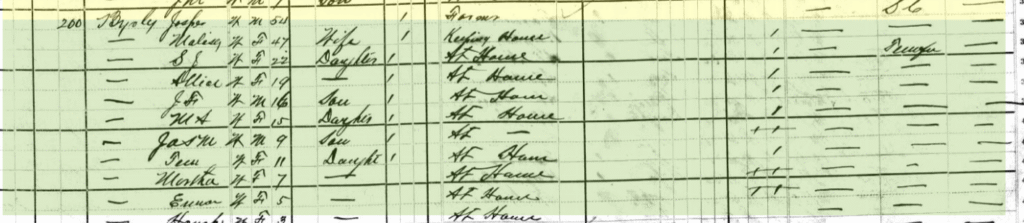 Son
200 Byrly Jasper W M 54 1 S C
— W F 47 Wife 1 Keeping House 1 — —
— S J W F 22 Daughter 1 At Home 1 — —
— W F 19 — 1 At Home 1 — —
— J F W M 16 Son 1 At Home 1 — —
— M A W F 15 Daughter 1 At Home 1 — —
— Jas M W M 9 Son 1 At — 1 1 — —
— W F 11 Daught 1 At Home 1 — —
— Martha W F 7 — At Home 1 1 — —
— Emma W F 5 — At Home 1 1 — —
— W F 3 — At Home — —